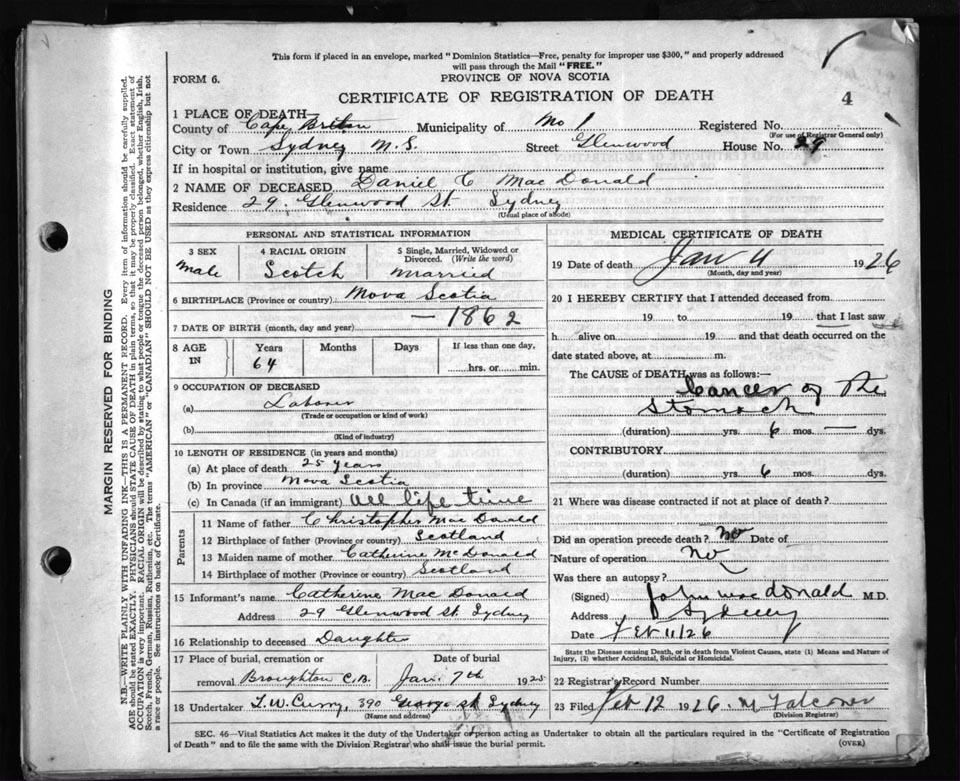 This form if placed in an envelope, marked "Dominion Statistics—Free, penalty for improper use $300," and properly addressed
will pass through the Mail "FREE."
FORM 6.
PROVINCE OF NOVA SCOTIA
CERTIFICATE OF REGISTRATION OF DEATH
4
1 PLACE OF DEATH—
County of Cape Breton Municipality of Registered No.
(For use of Registrar General only)
City or Town Sydney N.S. Street Glenwood House No. 29
If in hospital or institution, give name
2 NAME OF DECEASED Daniel C MacDonald
Residence 29 Glenwood St. Sydney
(Usual place of abode)
PERSONAL AND STATISTICAL INFORMATION
3 SEX
Male
4 RACIAL ORIGIN
Scotch
5 Single, Married, Widowed or
Divorced. (Write the word)
Married
6 BIRTHPLACE (Province or country) Nova Scotia
7 DATE OF BIRTH (month, day and year) — 1862
8 AGE IN
Years
64
Months
Days
If less than one day,
hrs. or min.
9 OCCUPATION OF DECEASED
(a) Laborer
(Trade or occupation or kind of work)
(b)
(Kind of industry)
10 LENGTH OF RESIDENCE (in years and months)
(a) At place of death 25 years
(b) In province Nova Scotia
(c) In Canada (if an immigrant) All life time
Parents
11 Name of father Christopher MacDonald
12 Birthplace of father (Province or country) Scotland
13 Maiden name of mother Catherine McDonald
14 Birthplace of mother (Province or country) Scotland
15 Informant's name Catherine MacDonald
Address 29 Glenwood St. Sydney
16 Relationship to deceased Daughter
17 Place of burial, cremation or
removal Broughton C.B.
Date of burial
Jan. 7th 1925
18 Undertaker T.W. Curry, 390 George St. Sydney
(Name and address)
MEDICAL CERTIFICATE OF DEATH
19 Date of death Jan 4 1926
(Month, day and year)
20 I HEREBY CERTIFY that I attended deceased from
19 to 19 that I last saw
h alive on 19 and that death occurred on the
date stated above, at m.
The CAUSE OF DEATH was as follows:—
Cancer of the
Stomach
(duration) yrs. 6 mos. — dys.
CONTRIBUTORY
(duration) yrs. 6 mos. dys.
21 Where was disease contracted if not at place of death?
Did an operation precede death? No Date of
Nature of operation No
Was there an autopsy?
(Signed) John MacDonald M.D.
Address Sydney
Date Feb 11/26
State the Disease causing Death, or in death from Violent Causes, state (1) Means and Nature of
Injury, (2) whether Accidental, Suicidal or Homicidal.
22 Registrar's Record Number
23 Filed Feb 12 1926. M Falconer
(Division Registrar)
SEC. 46—Vital Statistics Act makes it the duty of the Undertaker or person acting as Undertaker to obtain all the particulars required in the "Certificate of Registration
of Death" and to file the same with the Division Registrar who shall issue the burial permit. (OVER)
MARGIN RESERVED FOR BINDING
N.B.—WRITE PLAINLY WITH UNFADING INK—THIS IS A PERMANENT RECORD. Every item of information should be carefully supplied.
AGE should be stated EXACTLY. PHYSICIANS should STATE CAUSE OF DEATH in plain terms, so that it may be properly classified. Exact statement of
OCCUPATION is very important. RACIAL ORIGIN will be described by stating to what people or tongue the deceased person belonged, whether English, Irish,
Scotch, French, German, Russian, Ruthenian, etc. The terms "AMERICAN" or "CANADIAN" SHOULD NOT BE USED as they express citizenship but not
a race or people. See instructions on back of Certificate.